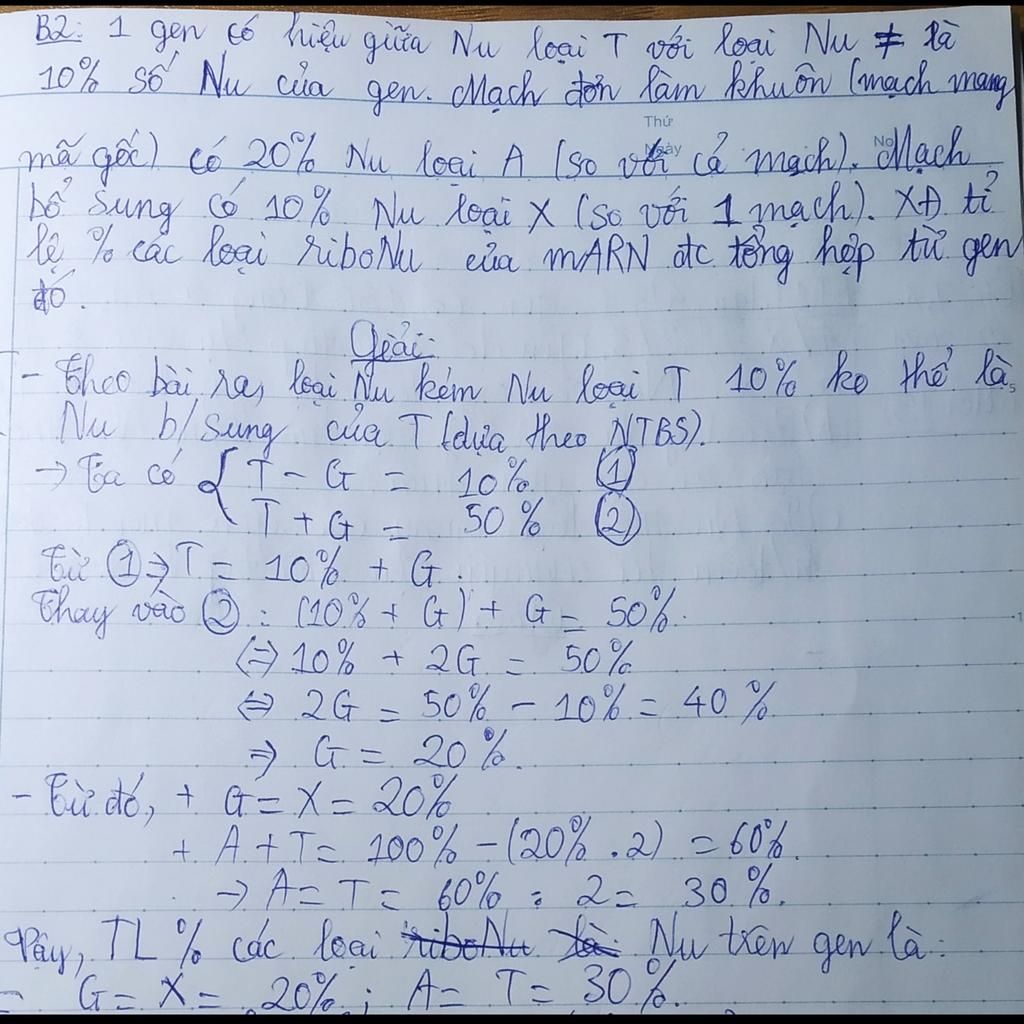 B2: 1 gen có hiệu giữa Nu loại T với loại Nu ≠ là
10% số Nu của gen. Mạch đơn làm khuôn (mạch mang
Thứ
mã gốc) có 20% Nu loại A (so với cả mạch). Mạch
Ngày
No
bổ sung có 10% Nu loại X (so với 1 mạch). XĐ tỉ
lệ % các loại riboNu của mARN đc tổng hợp từ gen
đó.
Giải:
- Theo bài ra, loại Nu kém Nu loại T 10% ko thể là
Nu b/sung của T (dựa theo NTBS).
→ Ta có { T - G = 10% ①
T + G = 50% ②
Từ ① ⇒ T = 10% + G.
Thay vào ② : (10% + G) + G = 50%.
⇔ 10% + 2G = 50%
⇔ 2G = 50% - 10% = 40%
⇒ G = 20%.
- Từ đó, + G = X = 20%
+ A + T = 100% - (20% . 2) = 60%.
→ A = T = 60% : 2 = 30%.
Vậy, TL % các loại riboNu là: Nu trên gen là:
- G = X = 20% ; A = T = 30%.